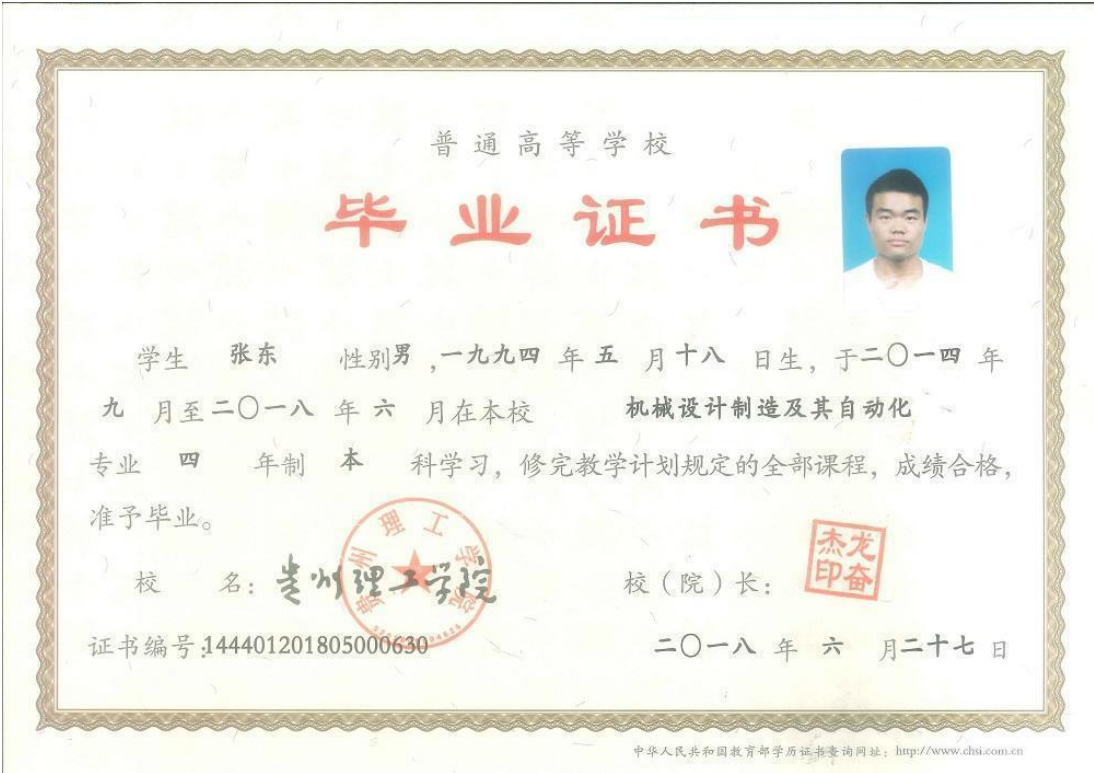 普通高等学校
毕业证书
学生 张东 性别男，一九九四年五月十八日生，于二〇一四年
九月至二〇一八年六月在本校 机械设计制造及其自动化
专业 四 年制 本 科学习，修完教学计划规定的全部课程，成绩合格，
准予毕业。
校 名：贵州理工学院
贵州理工学院
校（院）长：
龙奋杰印
证书编号:144401201805000630
二〇一八年六月二十七日
中华人民共和国教育部学历证书查询网址：http://www.chsi.com.cn